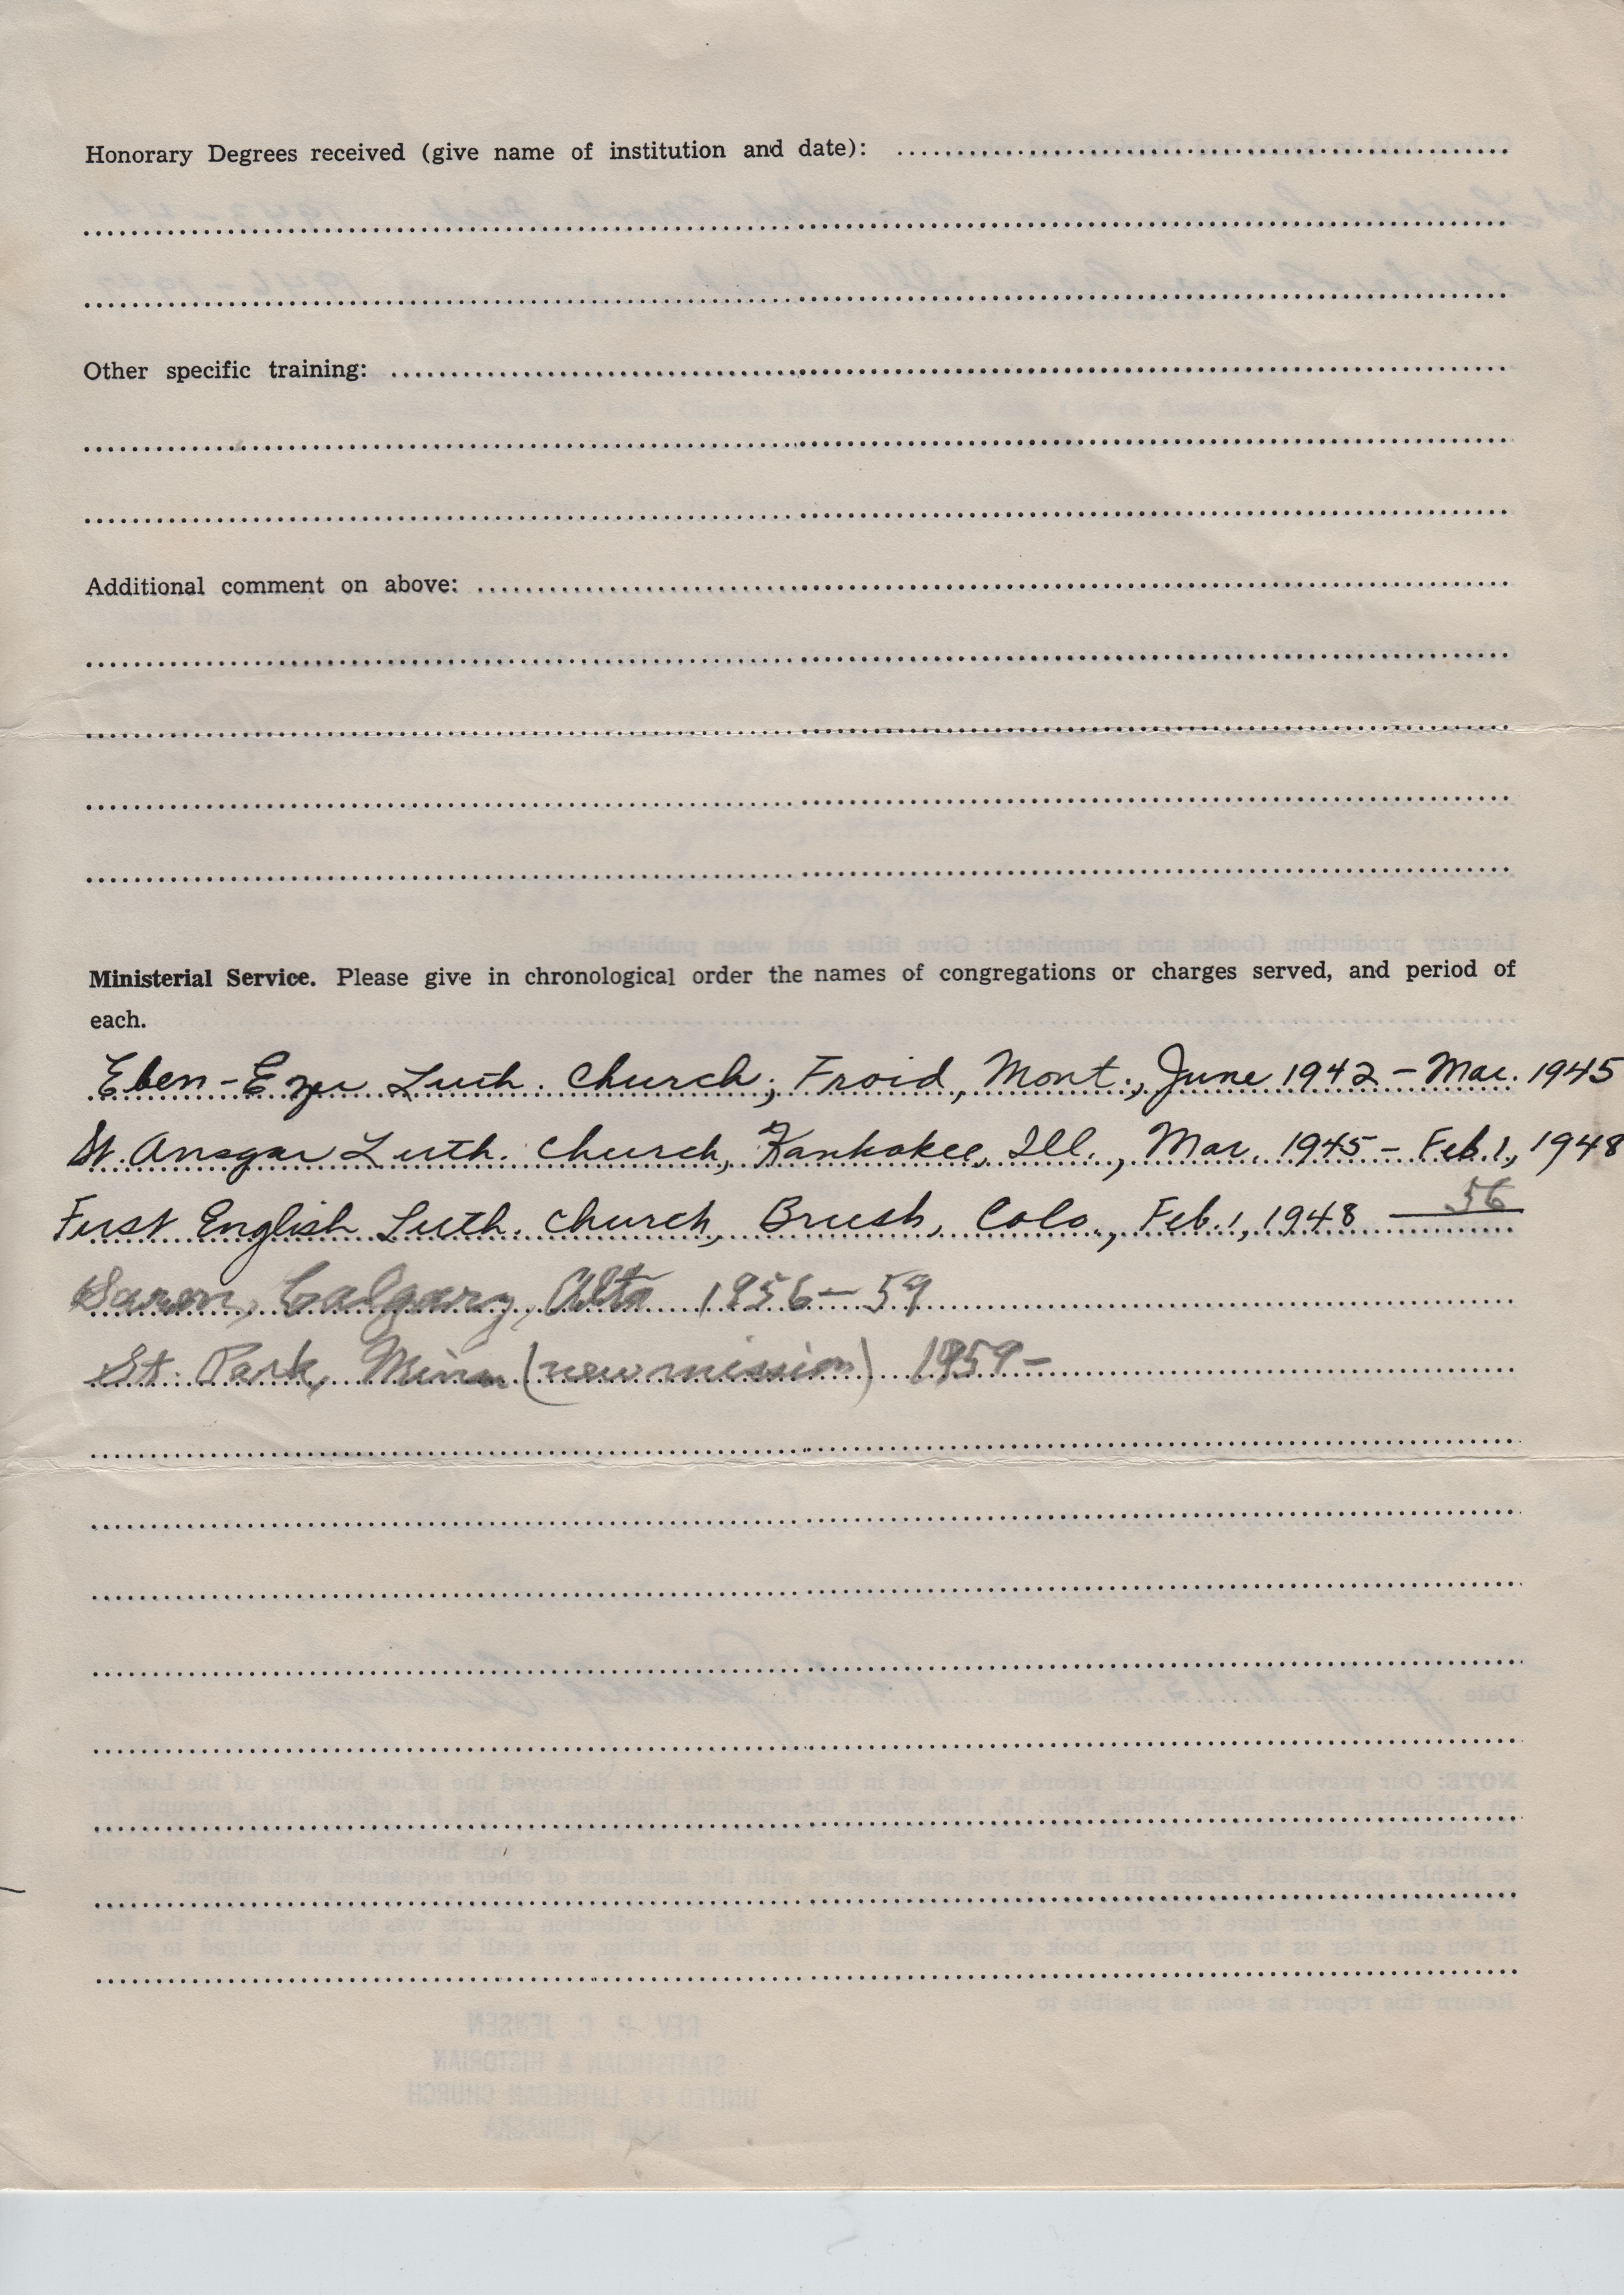 Honorary Degrees received (give name of institution and date):
Other specific training:
Additional comment on above:
Ministerial Service. Please give in chronological order the names of congregations or charges served, and period of
each.
Eben-Ezer Luth. Church, Froid, Mont., June 1942 - Mar. 1945
St. Ansgar Luth. Church, Kankakee, Ill., Mar. 1945 - Feb. 1, 1948
First English Luth. Church, Brush, Colo., Feb. 1, 1948 — 56
Saron, Calgary, Alta 1956 - 59
St. Park, Minn (new mission) 1959 -